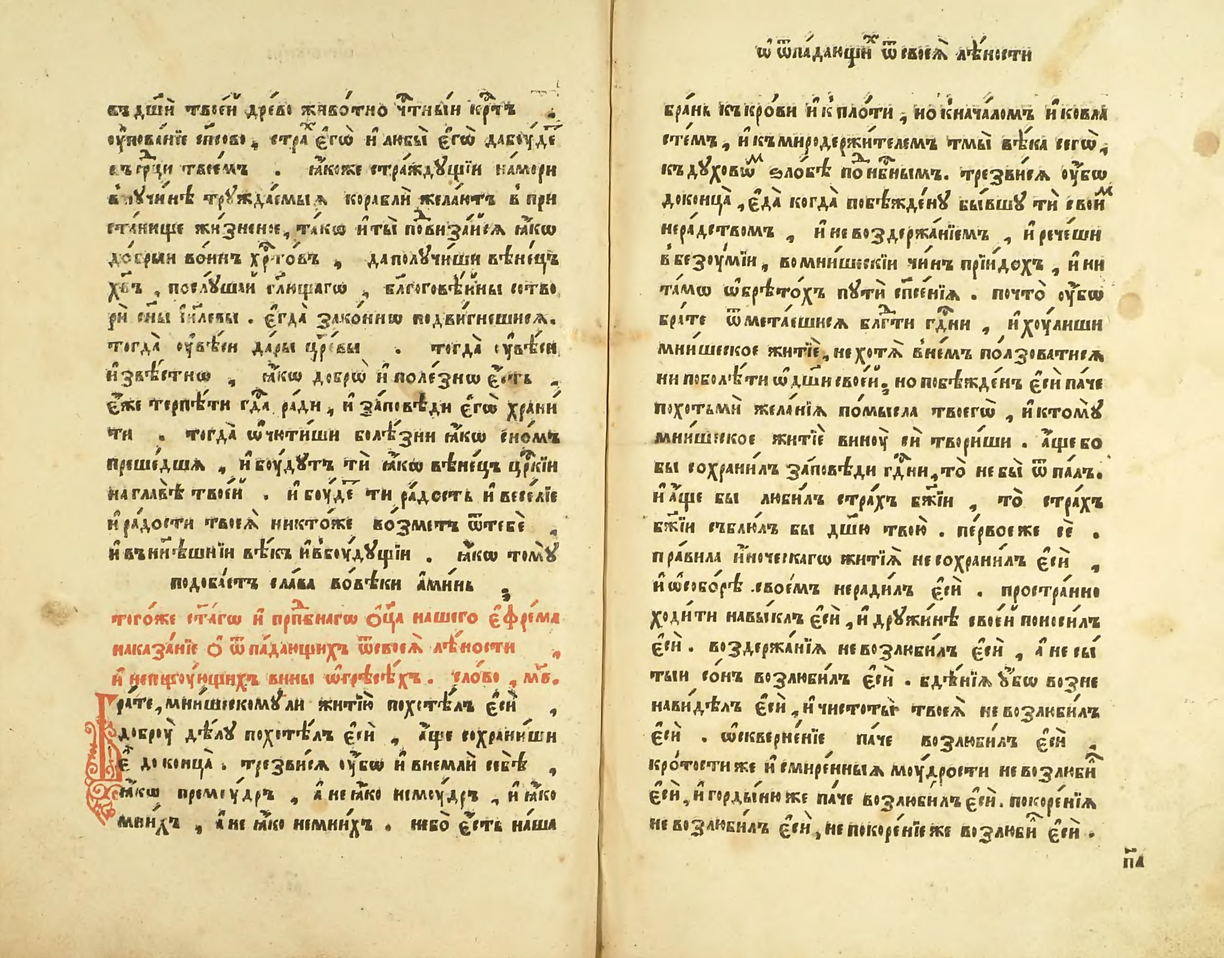 въ дш҃и твоей древо животно чⷭ҇тныи крⷭ҇тъ
оу҆пова́нїе сп҃сово, страⷯ є҆гѡ̀ и҆ любы̀ є҆гѡ̀ да бꙋ́деⷮ
въ срⷣцы твое́мъ . ꙗ҆́коже стра́ждꙋщїи на мори
в пꙋчи́нѣ трꙋжда́емыѧ корабли̑ жела́ютъ в при
ста́нище жи́зненое, та́кѡ и҆ ты̀ подвиза́йсѧ ꙗ҆́кѡ
до́брыи во́инъ хрⷭ҇то́въ , да полꙋчи́ши вѣне́цъ
хв҃ъ , послꙋ́шаи гл҃ющагѡ , блг҃оговѣ́йны сотво
рѝ сн҃ы і҆и҃левы . є҆гда̀ зако́ннѡ подви́гнешисѧ.
тогда̀ оу҆вѣ́си да́ры црⷭ҇вы . тогда̀ оу҆вѣ́си
и҆звѣ́стнѡ , ꙗ҆́кѡ добрѡ̀ и҆ поле́знѡ є҆́сть ,
є҆́же терпѣ́ти гдⷭ҇а ра́ди , и҆ за́повѣди є҆гѡ̀ храни́
ти . тогда̀ ѡ҆чю́тиши болѣ́зни ꙗ҆́кѡ сно́мъ
преше́дшѧ , и҆ бꙋ́дꙋтъ тѝ ꙗ҆́кѡ вѣне́цъ црⷭ҇кїи
на главѣ̀ твое́й . и҆ бꙋ́деⷮ ти ра́дость и҆ весе́лїе
и҆ ра́дости твоеѧ̀ никто́же во́зметъ ѿ тебѐ ,
и҆ въ ны́нѣшнїи вѣ́къ и҆ в бꙋ́дꙋщїи . ꙗ҆́кѡ томꙋ̀
подоба́етъ сла́ва во вѣ́ки а҆ми́нь
того́же ст҃а́гѡ и҆ прпⷣбнагѡ ѻ҆ц҃а̀ на́шего є҆фре́ма
наказа́нїе ѻ҆ ѿпа́дающихъ ѿ своеѧ̀ лѣ́ности ,
и҆ непщꙋ́ющихъ вины̀ ѡ҆ грѣсѣ́хъ . сло́во , мв҃.
Бра́те, мни́шескомꙋ ли житїю̀ похотѣ́лъ є҆сѝ ,
доброꙋ̀ дѣ́лꙋ похотѣ́лъ є҆сѝ , а҆́ще сохрани́ши
є҆̀ до конца̀ . трезви́сѧ оу҆́бѡ и҆ внема́й себѣ̀ ,
ꙗ҆́кѡ премꙋ́дръ , а҆ не ꙗ҆́ко немꙋ́дръ , и҆ ꙗ҆́ко
мни́хъ , а҆ не ꙗ҆́ко немни́хъ . нѣ́сть на́ша
ѡ҆ ѿпа́дающиⷯ ѿ своеѧ̀ лѣ́ности
бра́нь къ кро́ви и҆ к пло́ти , но к нача́ломъ и҆ ко вла
сте́мъ , и҆ къ миродержи́телемъ тмы̀ вѣ́ка сегѡ̀ ,
къ дꙋховѡⷨ ѕло́бѣ поⷣнб҃нымъ. трезви́сѧ оу҆́бѡ
до конца̀ , є҆да̀ когда̀ побѣжде́нꙋ бы́вшꙋ тѝ свои́ⷨ
нера́дствомъ , и҆ невоздержа́нїемъ , и҆ рече́ши
в безꙋ́мїи , во мни́шескїи чи́нъ прїидо́хъ , и҆ ни
та́мѡ ѡ҆брѣто́хъ пꙋтѝ спⷭ҇нїѧ . почто̀ оу҆́бѡ
бра́те ѿмета́ешисѧ блгⷣти гдⷭ҇ни , и҆ хꙋ́лиши
мни́шеское житїѐ, не хотѧ̀ в не́мъ по́лзоватисѧ
ни поболѣ́ти ѡ҆ дш҃и свое́й, но побѣжде́нъ є҆сѝ па́че
похотьмѝ жела́нїѧ по́мысла твоегѡ̀ , и҆ к томꙋ̀
мни́шеское житїѐ винꙋ̀ сѝ твори́ши . а҆́ще бо
бы сохрани́лъ за́повѣди гдⷭ҇ни, то̀ не бы̀ ѿпа́лъ.
и҆ а҆́ще бы люби́лъ стра́хъ бж҃їи , то̀ стра́хъ
бж҃їи съблю́лъ бы дш҃ю твою̀ . пе́рвое же сѐ .
пра́вила и҆́ноческагѡ житїѧ̀ не сохрани́лъ є҆сѝ ,
и҆ ѡ҆ собо́рѣ свое́мъ неради́лъ є҆сѝ . простра́нно
ходи́ти навы́клъ є҆сѝ , и҆ дрꙋжи́нѣ свое́й поноси́лъ
є҆сѝ . воздержа́нїѧ не возлюби́лъ є҆сѝ , а҆ не сы́
тыи со́нъ возлюби́лъ є҆сѝ . бдѣ́нїѧ ꙋ҆́бѡ возне
нави́дѣлъ є҆сѝ , и҆ чистоты̀ твоеѧ̀ не возлюби́лъ
є҆сѝ . ѡ҆скверне́нїе па́че возлюби́лъ є҆сѝ .
кро́тости же и҆ смире́нныѧ мꙋ́дрости не возлюбиⷧ҇
є҆сѝ , и҆ горды́ню же па́че возлюби́лъ є҆сѝ. покоре́нїѧ
не возлюби́лъ є҆сѝ , непокоре́нїе же возлюбиⷧ҇ є҆сѝ .
п҃а